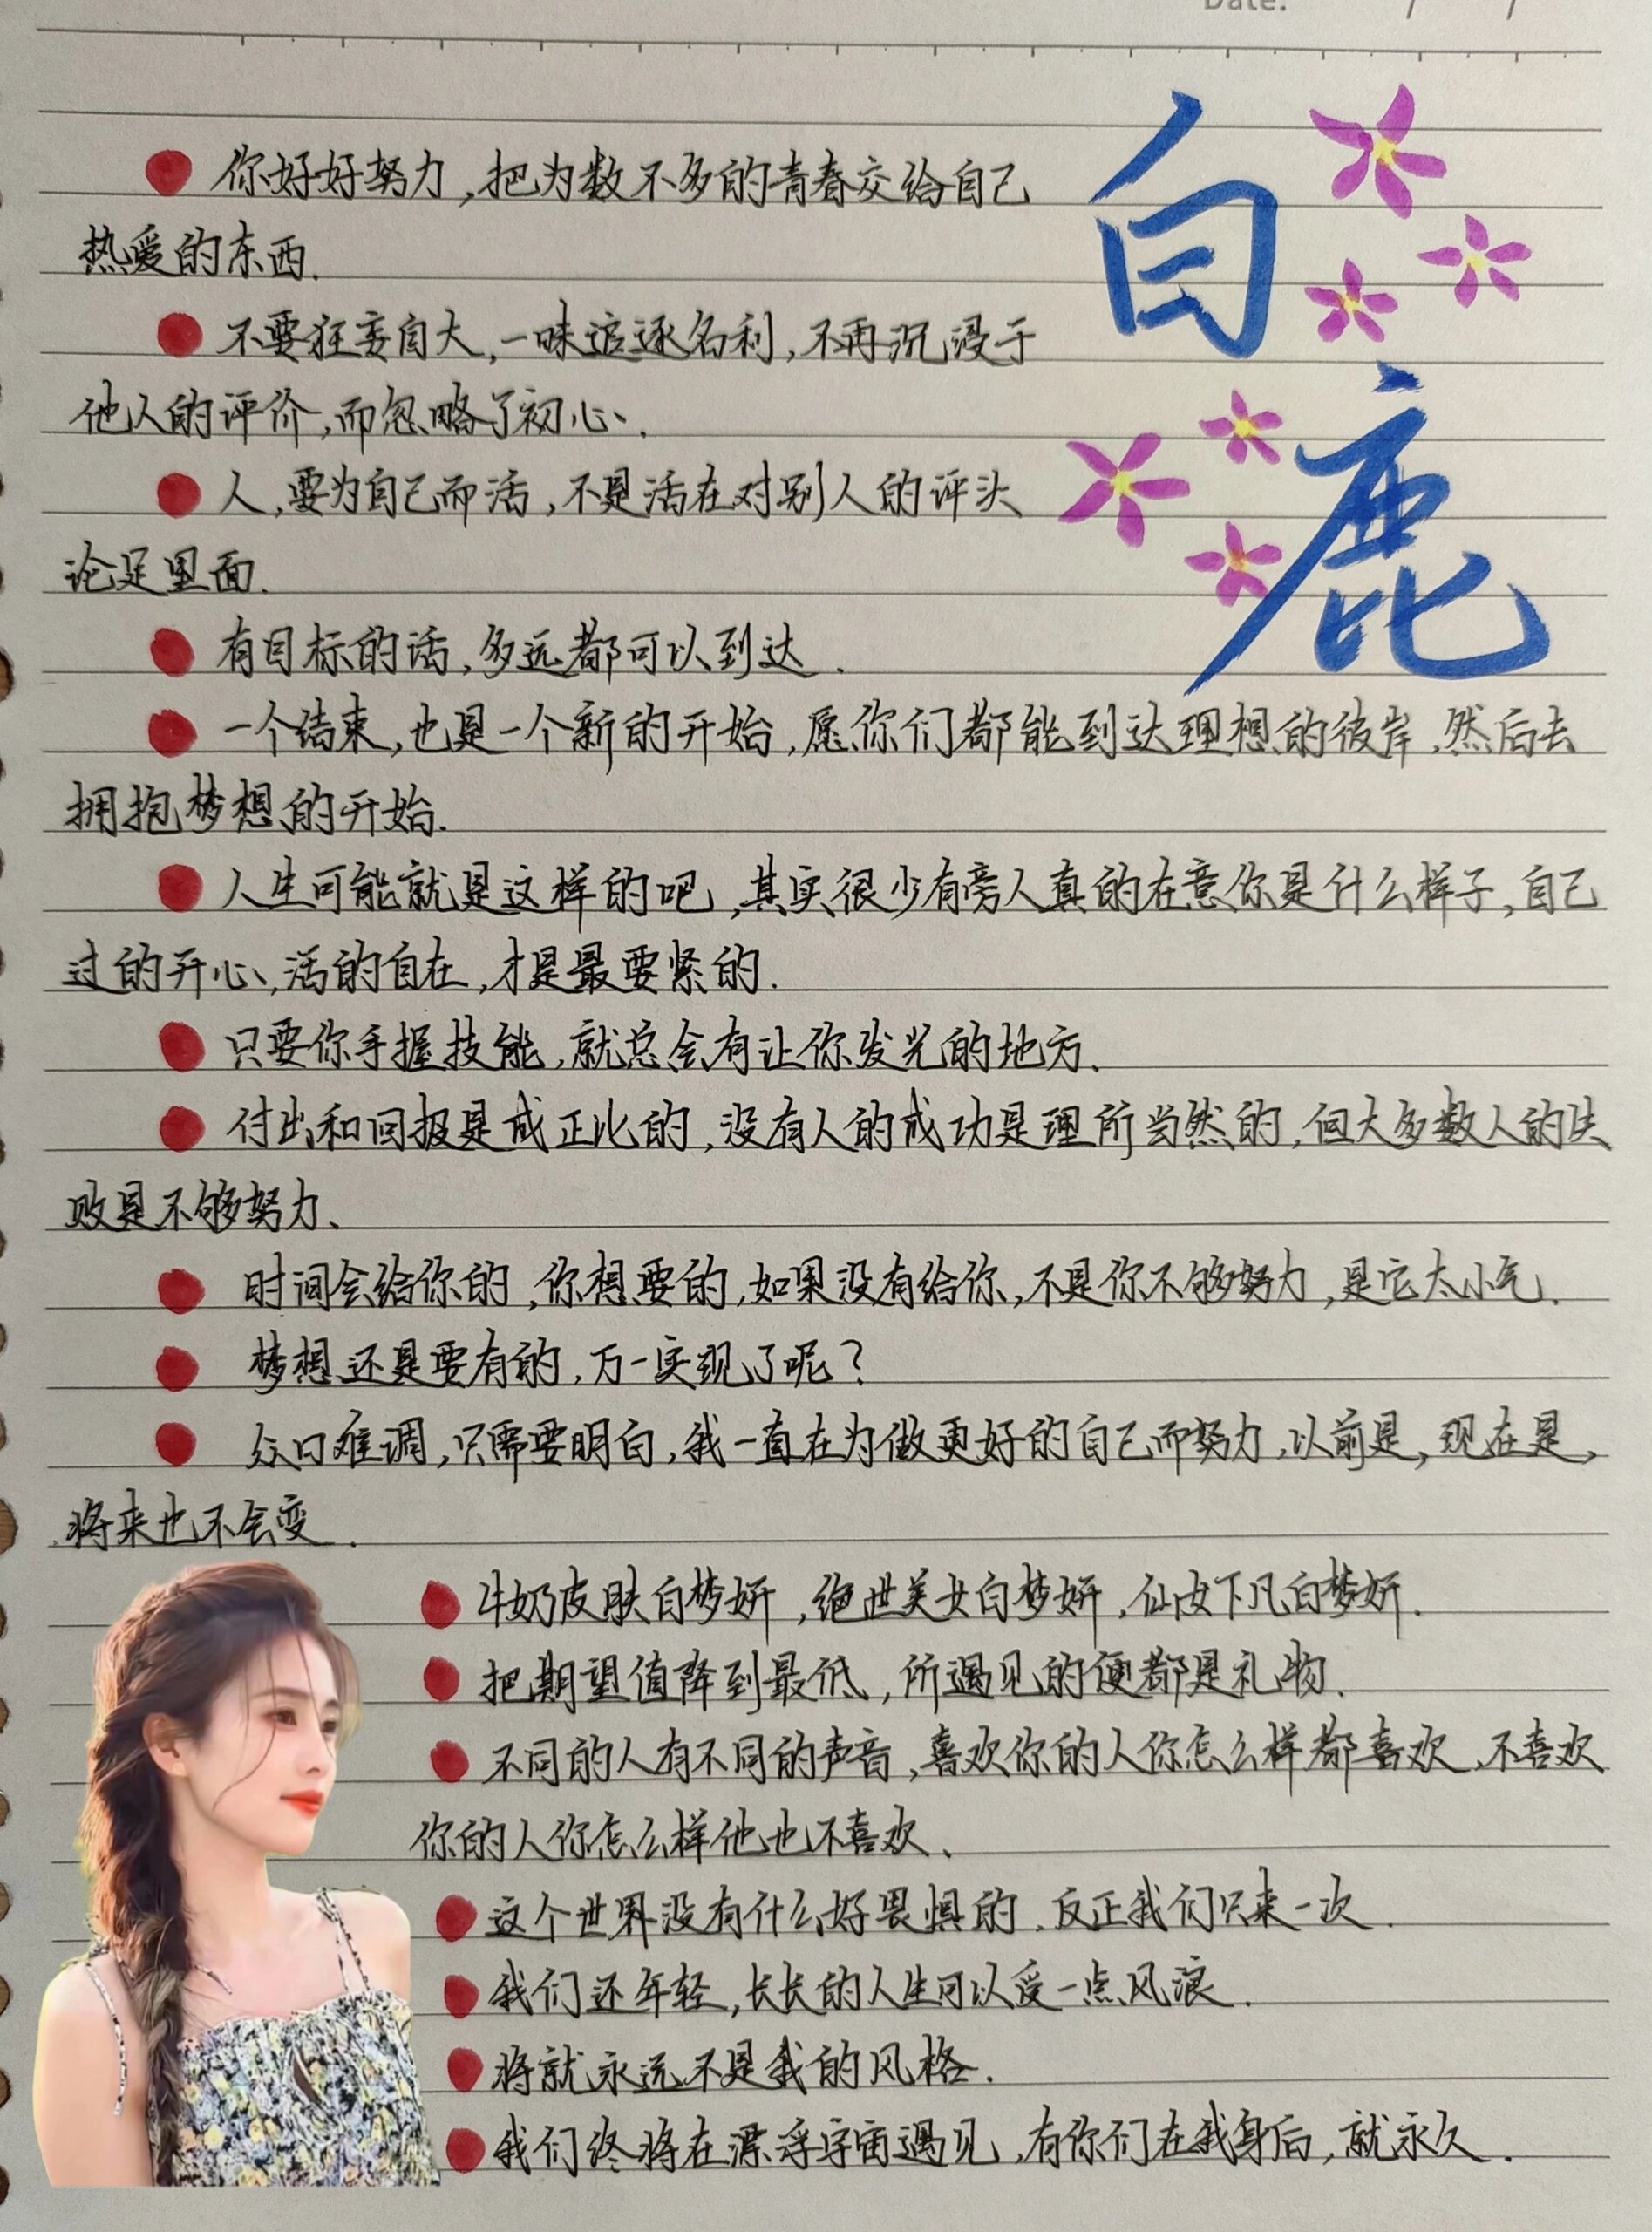 Date: / /
白鹿
你好好努力,把为数不多的青春交给自己
热爱的东西.
不要狂妄自大,一味追逐名利,不再沉浸于
他人的评价,而忽略了初心.
人,要为自己而活,不是活在对别人的评头
论足里面.
有目标的话,多远都可以到达.
一个结束,也是一个新的开始,愿你们都能到达理想的彼岸,然后去
拥抱梦想的开始.
人生可能就是这样的吧,其实很少有旁人真的在意你是什么样子,自己
过的开心、活的自在,才是最要紧的.
只要你手握技能,就总会有让你发光的地方.
付出和回报是成正比的,没有人的成功是理所当然的,但大多数人的失
败是不够努力、
时间会给你的,你想要的,如果没有给你,不是你不够努力,是它太小气.
梦想还是要有的,万一实现了呢?
众口难调,只需要明白,我一直在为做更好的自己而努力,以前是,现在是,
将来也不会变.
牛奶皮肤白梦妍,绝世美女白梦妍,仙女下凡白梦妍.
把期望值降到最低,所遇见的便都是礼物.
不同的人有不同的声音,喜欢你的人你怎么样都喜欢,不喜欢
你的人你怎么样他也不喜欢、
这个世界没有什么好畏惧的,反正我们只来一次.
我们还年轻,长长的人生可以受一点风浪.
将就永远不是我的风格.
我们终将在漂浮宇宙遇见,有你们在我身后,就永久.